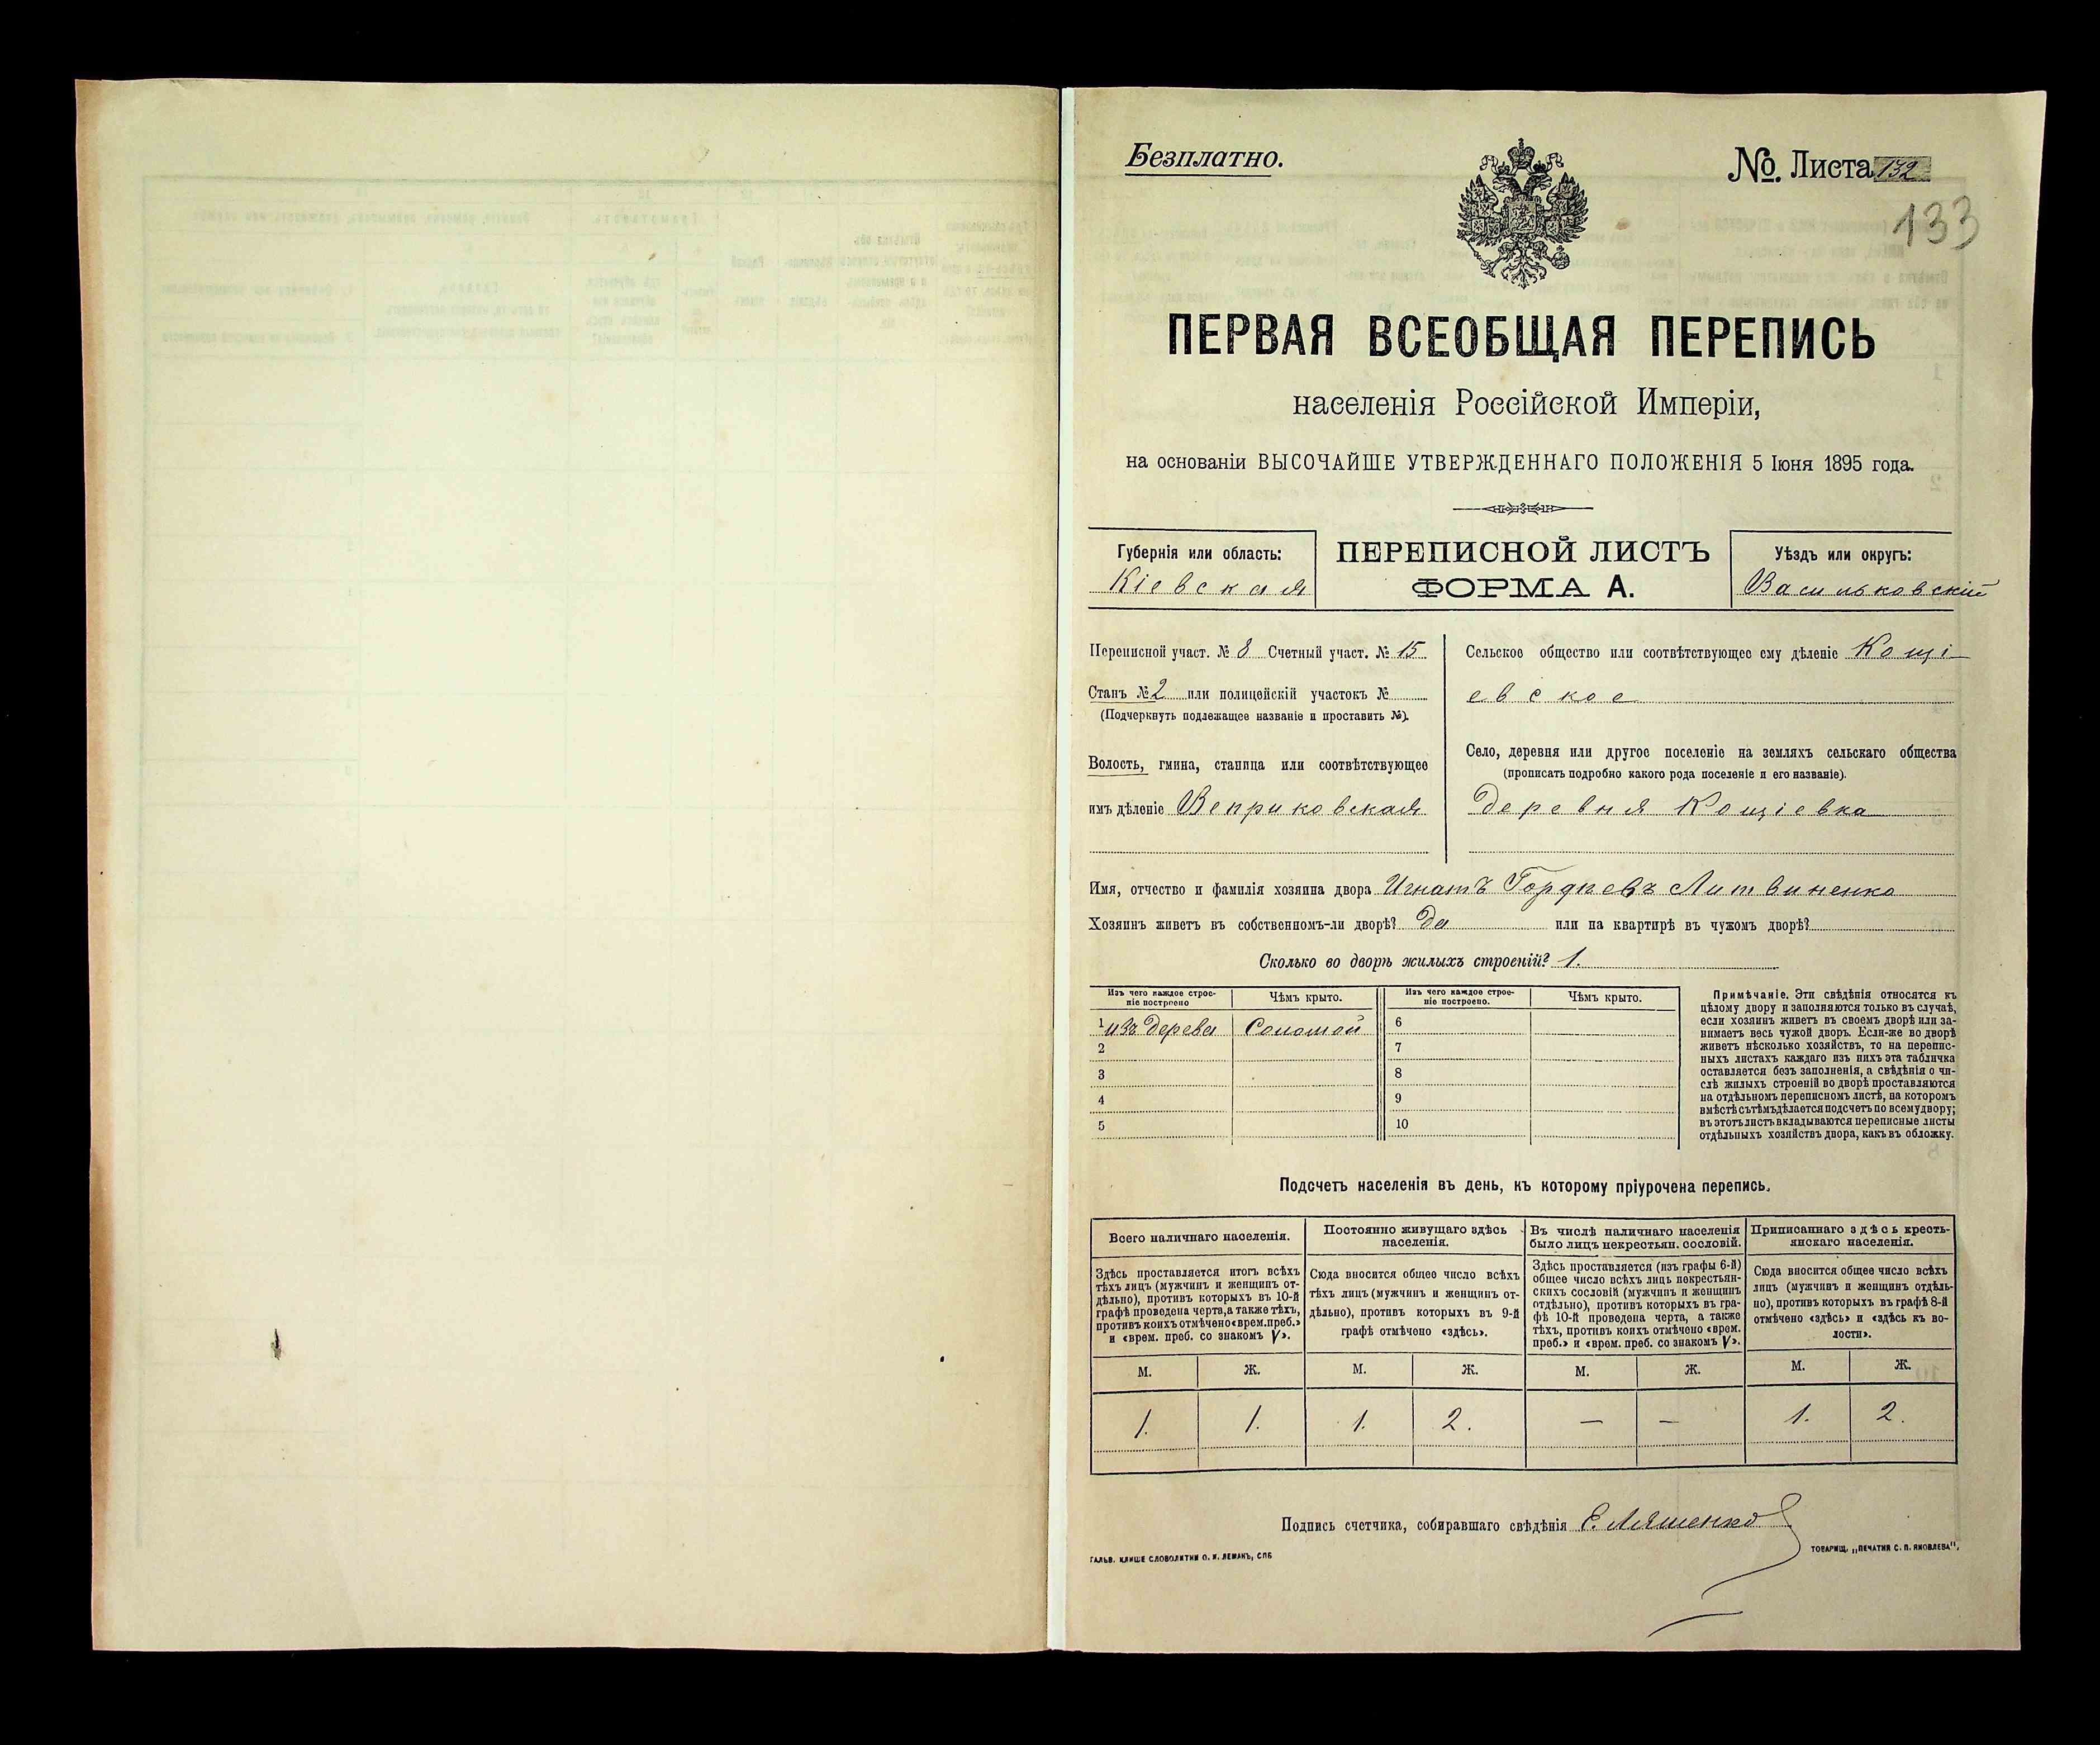 Безплатно.
№. Листа 132
133
ПЕРВАЯ ВСЕОБЩАЯ ПЕРЕПИСЬ
населенія Россійской Имперіи,
на основаніи ВЫСОЧАЙШЕ УТВЕРЖДЕННАГО ПОЛОЖЕНІЯ 5 Іюня 1895 года.
Губернія или область:
Кіевская
ПЕРЕПИСНОЙ ЛИСТЪ
ФОРМА А.
Уѣздъ или округъ:
Васильковскій
Переписной участ. № 8 Счетный участ. № 15
Станъ № 2 или полицейскій участокъ №
(Подчеркнуть подлежащее названіе и проставить №).
Волость, гмина, станица или соотвѣтствующее
имъ дѣленіе Веприковская
Сельское общество или соотвѣтствующее ему дѣленіе Кощі-
евское
Село, деревня или другое поселеніе на земляхъ сельскаго общества
(прописать подробно какого рода поселеніе и его названіе).
деревня Кощіевка
Имя, отчество и фамилія хозяина двора Игнатъ Гордѣевъ Литвиненко
Хозяинъ живетъ въ собственномъ-ли дворѣ? Да или на квартирѣ въ чужомъ дворѣ?
Сколько во дворѣ жилыхъ строеній? 1.
Изъ чего каждое строе-
ніе построено
Чѣмъ крыто.
Изъ чего каждое строе-
ніе построено.
Чѣмъ крыто.
1 изъ дерева Соломой
2
3
4
5
6
7
8
9
10
Примѣчаніе. Эти свѣдѣнія относятся къ
цѣлому двору и заполняются только въ случаѣ,
если хозяинъ живетъ въ своемъ дворѣ или за-
нимаетъ весь чужой дворъ. Если-же во дворѣ
живетъ нѣсколько хозяйствъ, то на перепис-
ныхъ листахъ каждаго изъ нихъ эта табличка
оставляется безъ заполненія, а свѣдѣнія о чи-
слѣ жилыхъ строеній во дворѣ проставляются
на отдѣльномъ переписномъ листѣ, на которомъ
вмѣстѣ съ тѣмъ дѣлается подсчетъ по всему двору;
въ этотъ листъ вкладываются переписные листы
отдѣльныхъ хозяйствъ двора, какъ въ обложку.
Подсчетъ населенія въ день, къ которому пріурочена перепись.
Всего наличнаго населенія.
Здѣсь проставляется итогъ всѣхъ
тѣхъ лицъ (мужчинъ и женщинъ от-
дѣльно), противъ которыхъ въ 10-й
графѣ проведена черта, а также тѣхъ,
противъ коихъ отмѣчено «врем. преб.»
и «врем. преб. со знакомъ V».
Постоянно живущаго здѣсь
населенія.
Сюда вносится общее число всѣхъ
тѣхъ лицъ (мужчинъ и женщинъ от-
дѣльно), противъ которыхъ въ 9-й
графѣ отмѣчено «здѣсь».
Въ числѣ наличнаго населенія
было лицъ некрестьян. сословій.
Здѣсь проставляется (изъ графы 6-й)
общее число всѣхъ лицъ некрестьян-
скихъ сословій (мужчинъ и женщинъ
отдѣльно), противъ которыхъ въ гра-
фѣ 10-й проведена черта, а также
тѣхъ, противъ коихъ отмѣчено «врем.
преб.» и «врем. преб. со знакомъ V».
Приписаннаго здѣсь кресть-
янскаго населенія.
Сюда вносится общее число всѣхъ
лицъ (мужчинъ и женщинъ отдѣль-
но), противъ которыхъ въ графѣ 8-й
отмѣчено «здѣсь» и «здѣсь къ во-
лости».
М. Ж. М. Ж. М. Ж. М. Ж.
1. 1. 1. 2. — — 1. 2.
Подпись счетчика, собиравшаго свѣдѣнія Е. Ляшенко
ГАЛЬВ. КЛИШЕ СЛОВОЛИТНИ О. И. ЛЕМАНЪ, СПБ
ТОВАРИЩ. „ПЕЧАТНЯ С. П. ЯКОВЛЕВА",